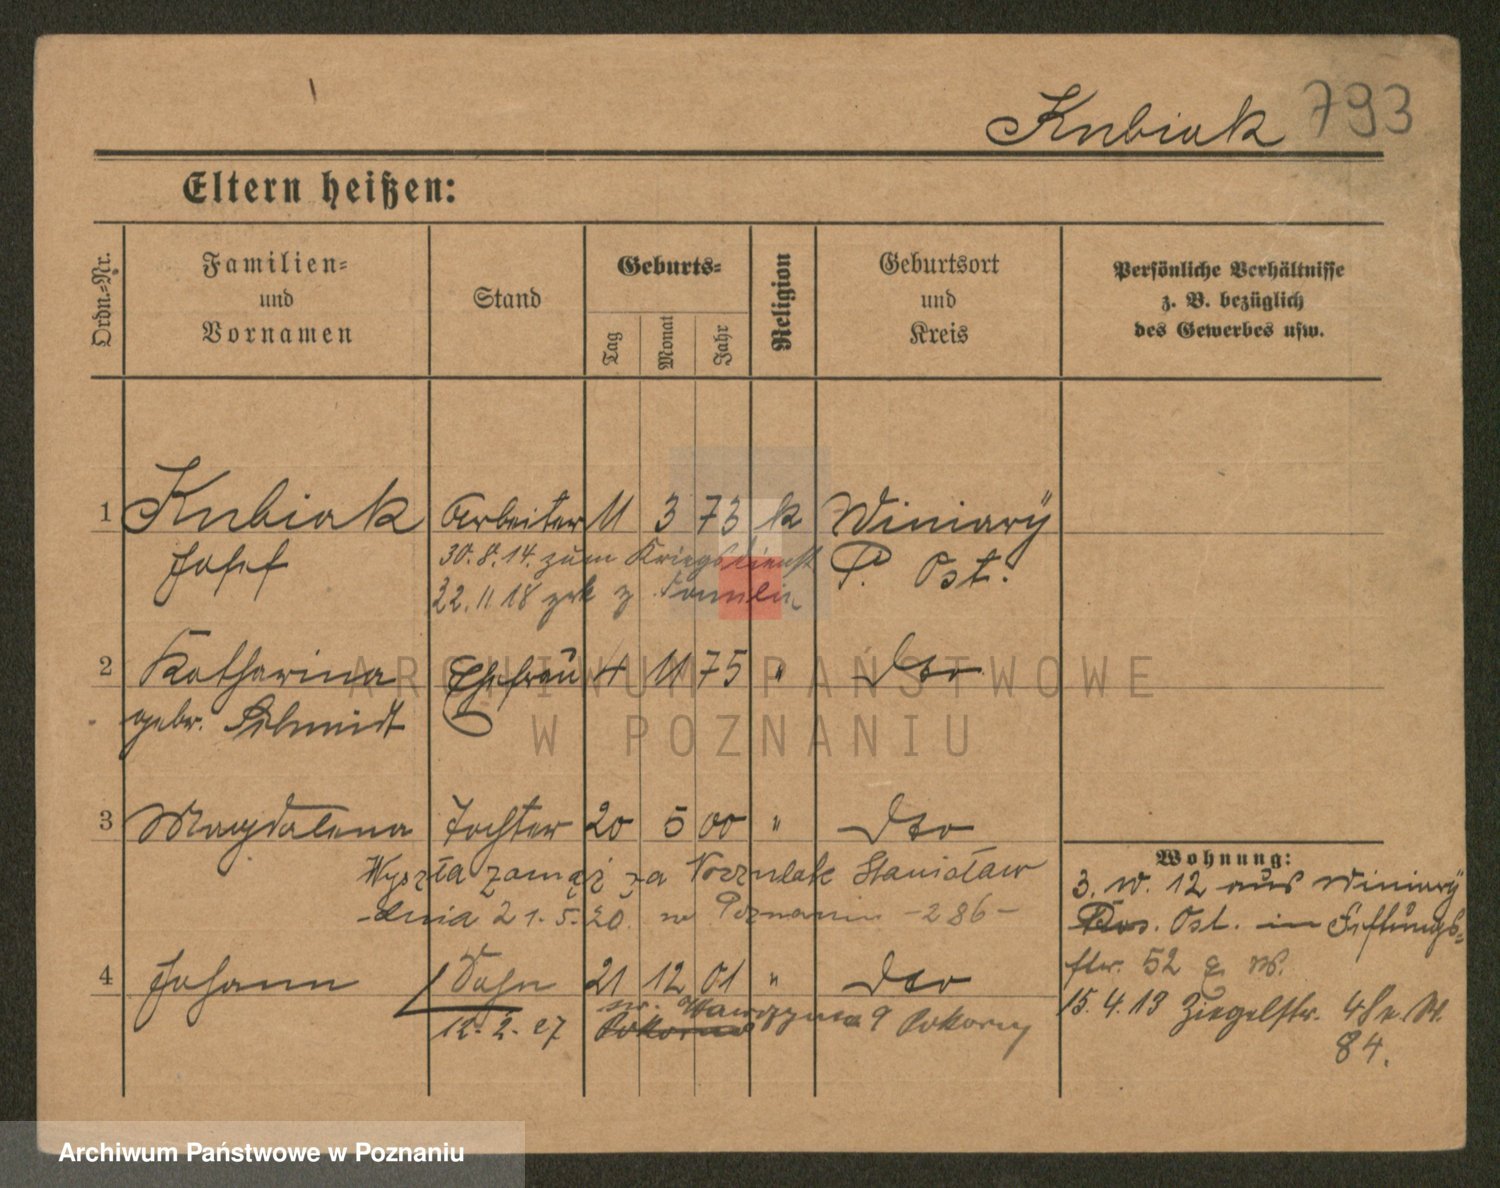 Kubiak 793
Eltern heißen:
Ordn.-Nr.
Familien-
und
Vornamen
Stand
Geburts-
Tag
Monat
Jahr
Religion
Geburtsort
und
Kreis
Persönliche Verhältnisse
z. B. bezüglich
des Gewerbes usw.
1 Kubiak Arbeiter 11 3 73 k Winiary
Josef 30.8.14. zum Kriegsdienst P. Ost.
22.11 18 zrk z Familie
2 Katharina Ehefrau 4 11 75 " dto
gebr. Schmidt
3 Magdalena Tochter 20 5 00 " dto
Wyszła zamąż za Stanisław
dnia 21.5.20. w Poznaniu -286-
4 Johann Sohn 21 12 01 " dto
12.2.27 Wawrzyna 9 Pokorny
Wohnung:
3. IV. 12 aus Winiary
Pos. Ost. in
str. 52 E. W.
15.4.13 Ziegelstr. 48 W.
84.
ARCHIWUM PAŃSTWOWE
W POZNANIU
Archiwum Państwowe w Poznaniu